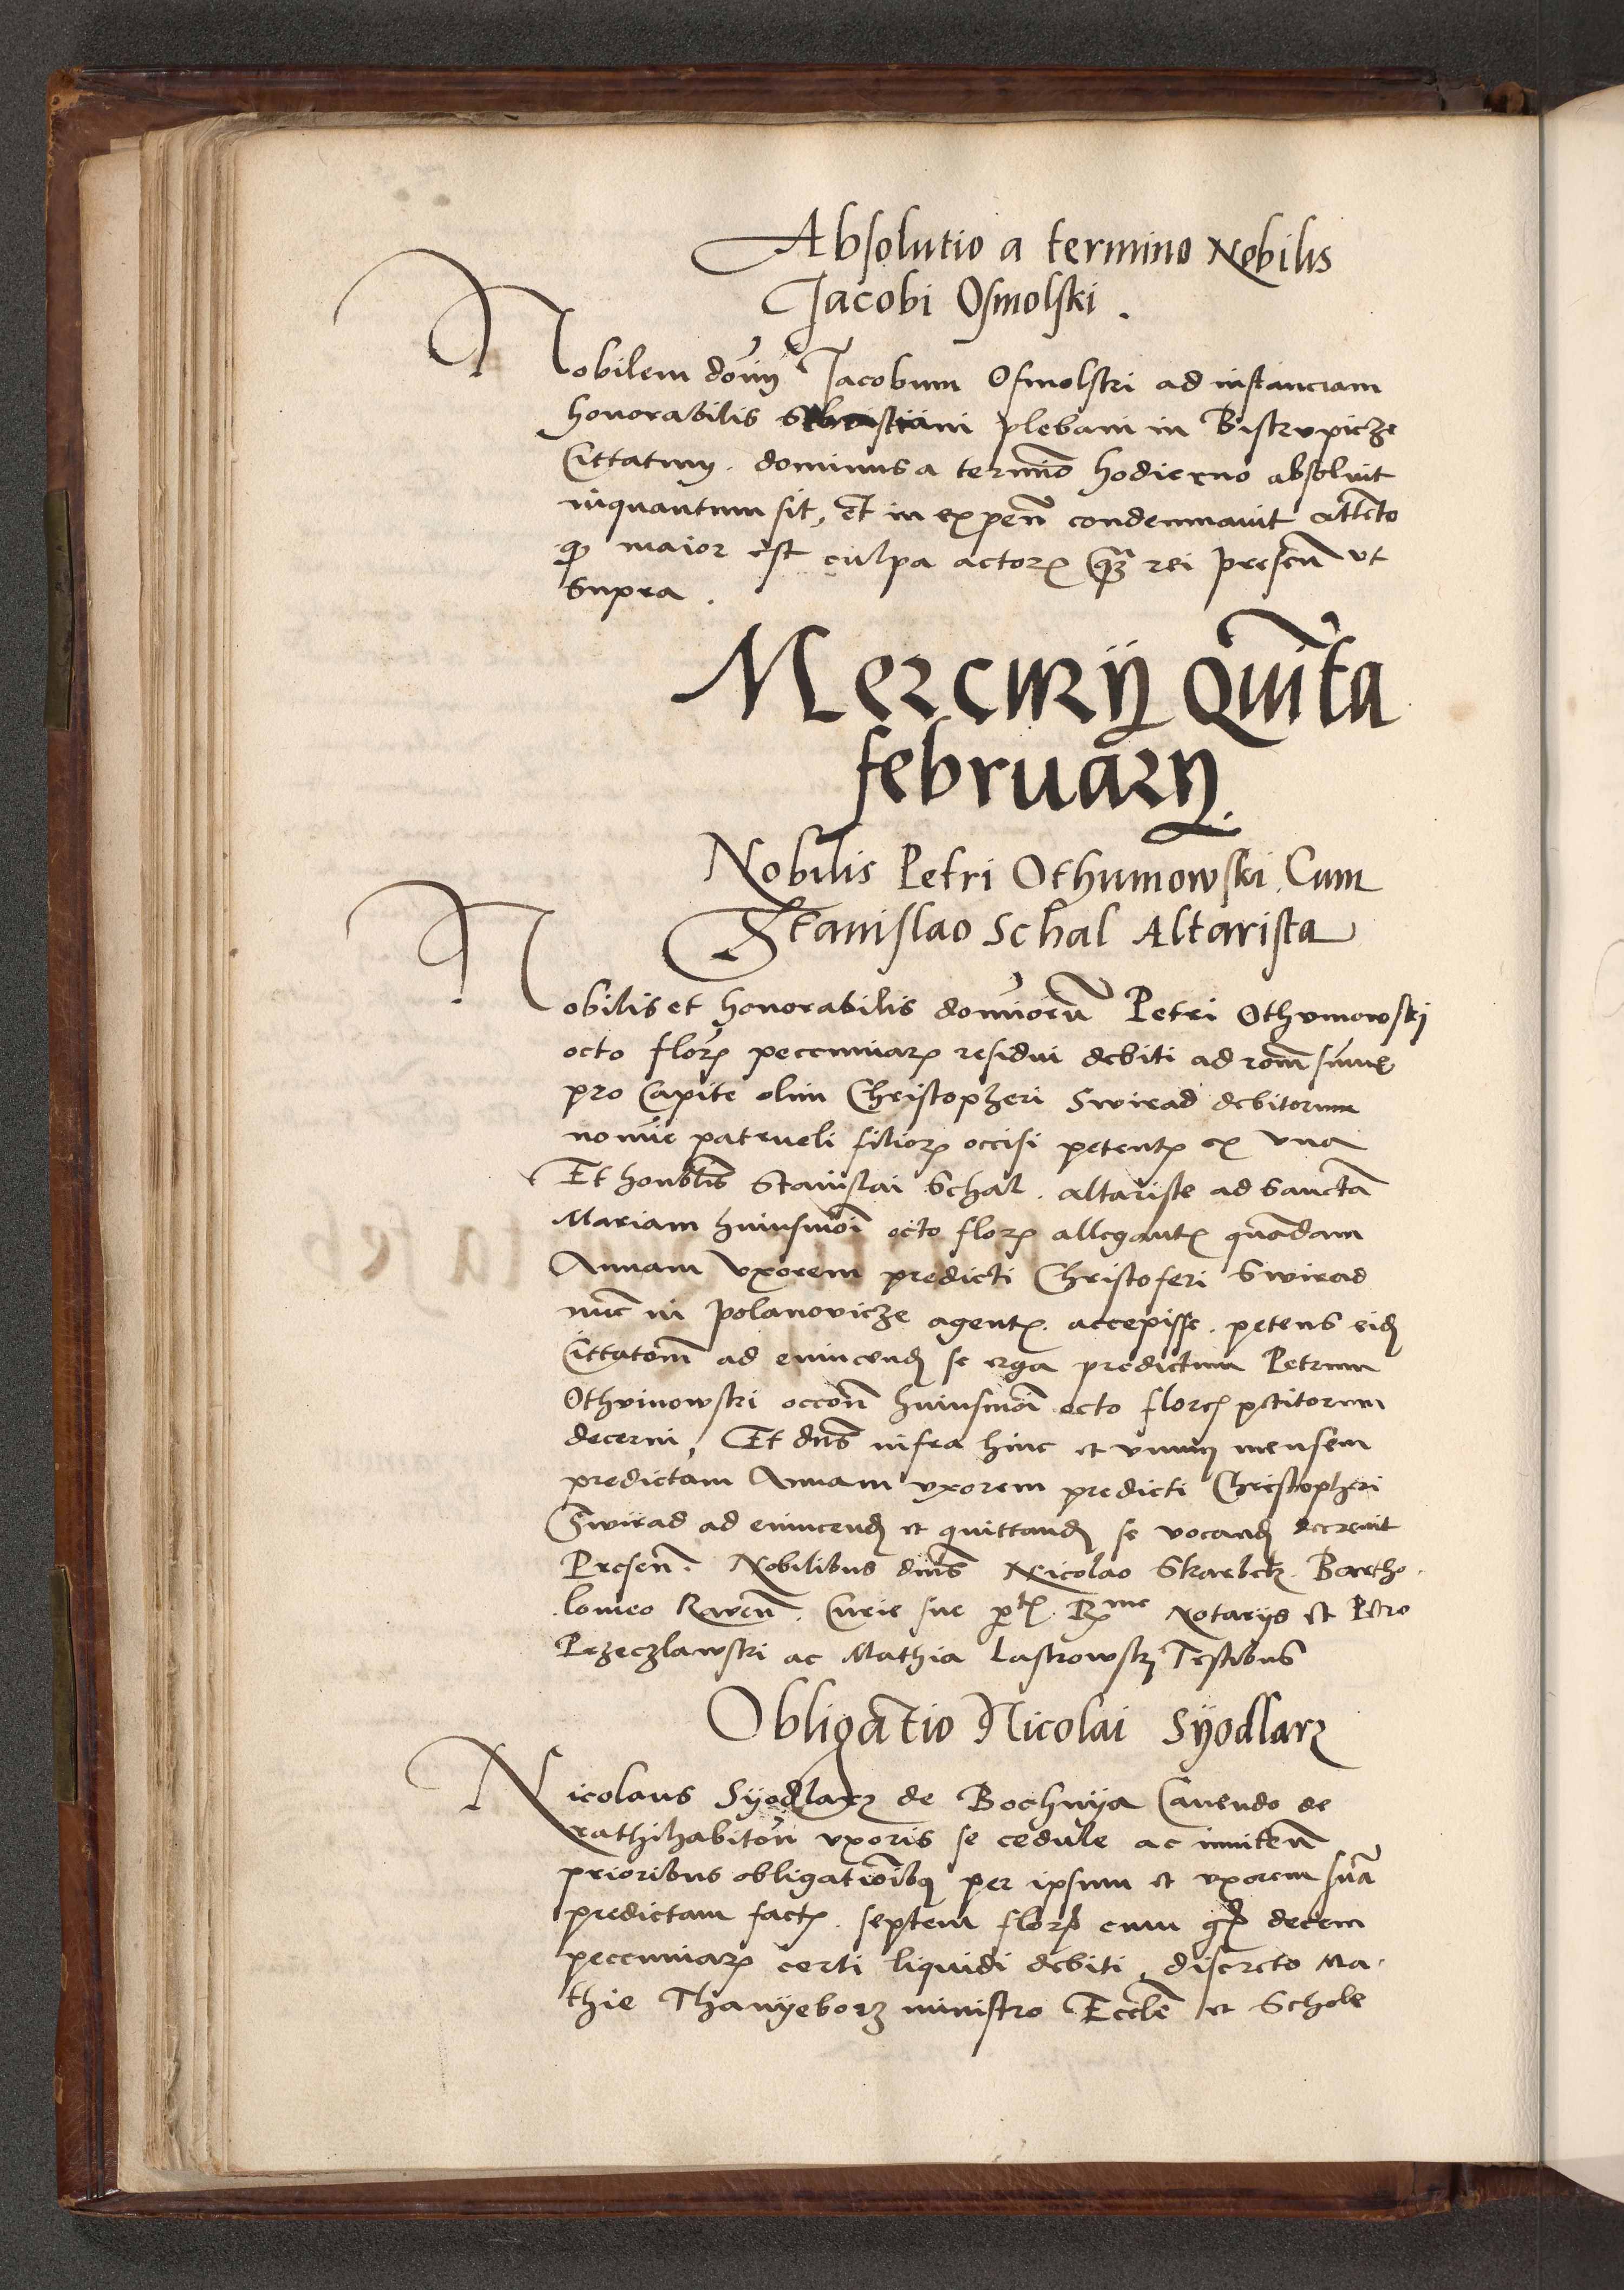 Absolutio a termino Nobilis
Jacobi Osmolski .
Nobilem domi͂ Jacobum Osmolski ad instanciam
honorabilis plebani in Bistrzpicze
Cittatum . dominus a termi͂o hodierno absoluit
inquantum sit, Et in expen͂ condemnauit attēto
ꝙ maior est culpa actorꝫ ꝙꝫ rei presen͂ vt
supra .
Mercurij Qui͂ta
februarij.
Nobilis Petri Othumowski Cum
Stanislao Schal Altarista
Nobilis et honorabilis dominoru͂ Petri Othvinowskj
octo florꝫ pecuniarꝫ residui debiti ad rom͂
pro Capite olim Christopheri Swirad debitorum
nomi͂e patrueli filiorꝫ occisi petentꝫ ex vna
Et honblīs Stanislai Schal . altariste ad Sancta͂
Mariam huiusmōi octo florꝫ allegantꝫ quandam
Annam Vxorem predicti Christoferi Swirad
nu͂c in Polanovicze agentꝫ . accepisse . petens
Cittatōm ad euincendꝫ se erga predictum Petrum
Othvinowski occōn huiusmōi octo florꝫ petitorum
decerni, Et dn͂s infra hinc et vnum mensem
predictam Annam vxorem predicti Christopheri
Swirad ad euincendꝫ et quittandꝫ se vocandꝫ decreuit
Presen͂ . Nobilibus dn͂is Nicolao Skarbek . Bartho
lomeo . Curie sue Notarijs et Petro
Przeczlawski ac Mathia Lastrowskj Testibus
Obligatio Nicolai Syodlarz
Nicolaus Syodlarz de Bochnija Cauendo de
rathihabitōn vxoris se cedule ac initen͂
prioribus obligatiōibꝫ per ipsum et vxorem sua͂
predictam factꝫ . septem florꝫ cum gꝫ decem
pecuniarꝫ certi liquidi debiti , discreto Ma-
thie Thanijeborz ministro Eccle͂ et Schole